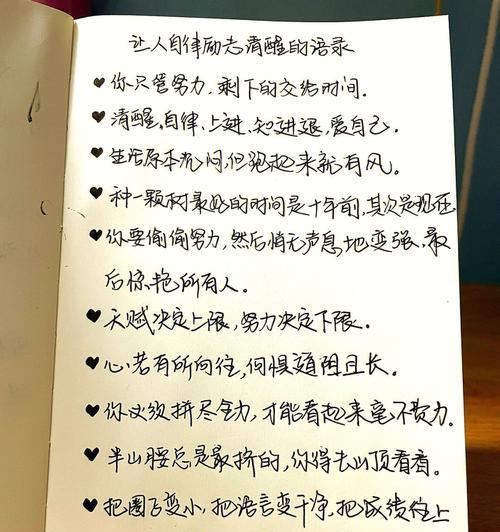 让人自律励志清醒的语录
♥你只管努力,剩下的交给时间.
♥清醒,自律,上进,知进退,爱自己.
♥生活原本沉闷,但跑起来就有风。
♥种一颗树最好的时间是十年前,其次是现在
♥你要偷偷努力,然后悄无声息地变强,最
后惊艳所有人。
♥天赋决定上限,努力决定下限.
♥心若有所向往,何惧道阻且长.
♥你必须拼尽全力,才能看起来毫不费力.
♥半山腰总是最挤的,你得去山顶看看.
♥把圈子变小,把语言变干净,把成绩往上